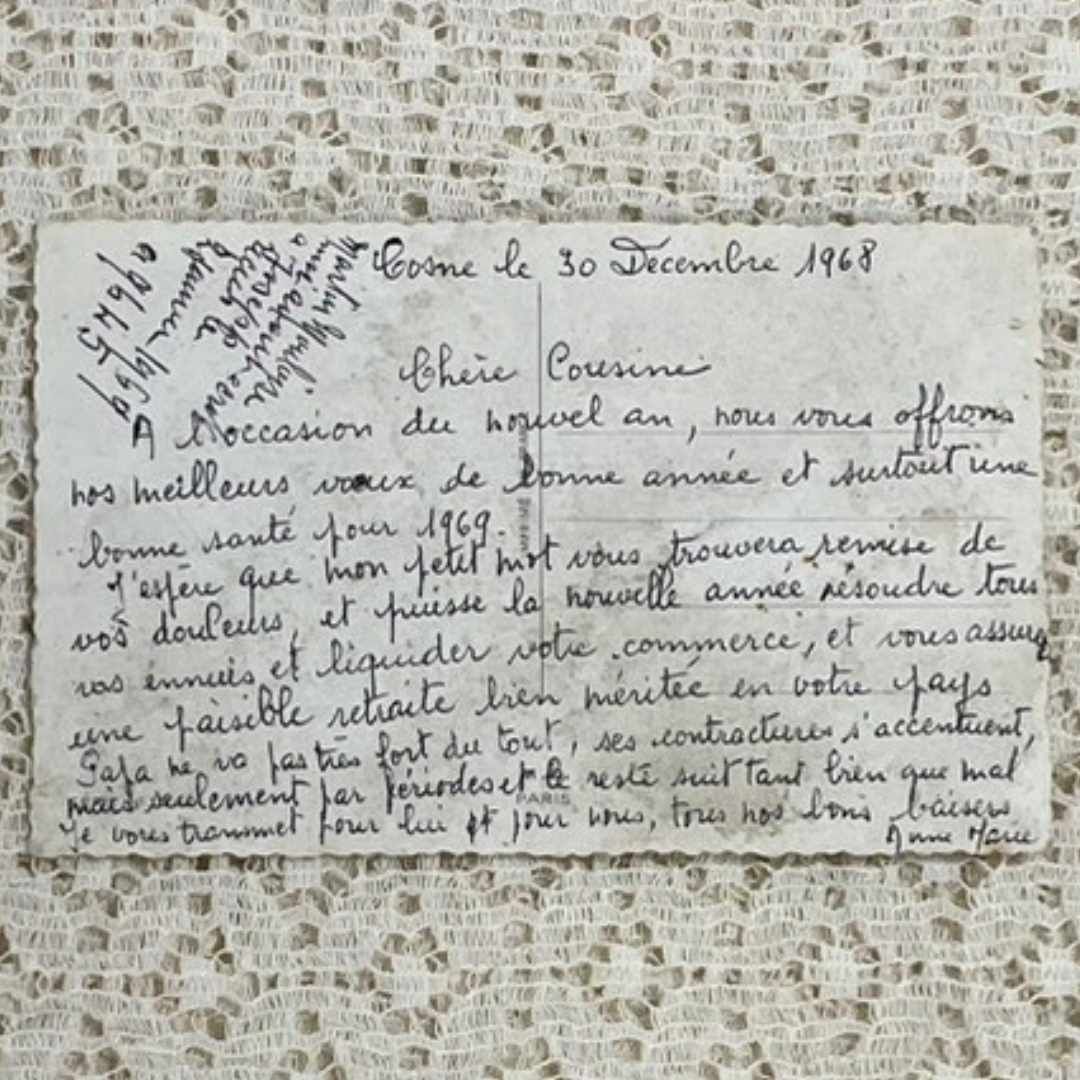 Cosne le 30 Décembre 1968
Chère Cousine
A l'occasion du nouvel an, nous vous offrons
nos meilleurs vœux de bonne année et surtout une
bonne santé pour 1969.
J'espère que mon petit mot vous trouvera remise de
vos douleurs, et puisse la nouvelle année résoudre tous
vos ennuis et liquider votre commerce, et vous assurer
une paisible retraite bien méritée en votre pays
Papa ne va pas très fort du tout, ses contractures s'accentuent,
mais seulement par périodes et le reste suit tant bien que mal
Je vous transmet pour lui et pour nous, tous nos bons baisers
Anne Marie
PARIS